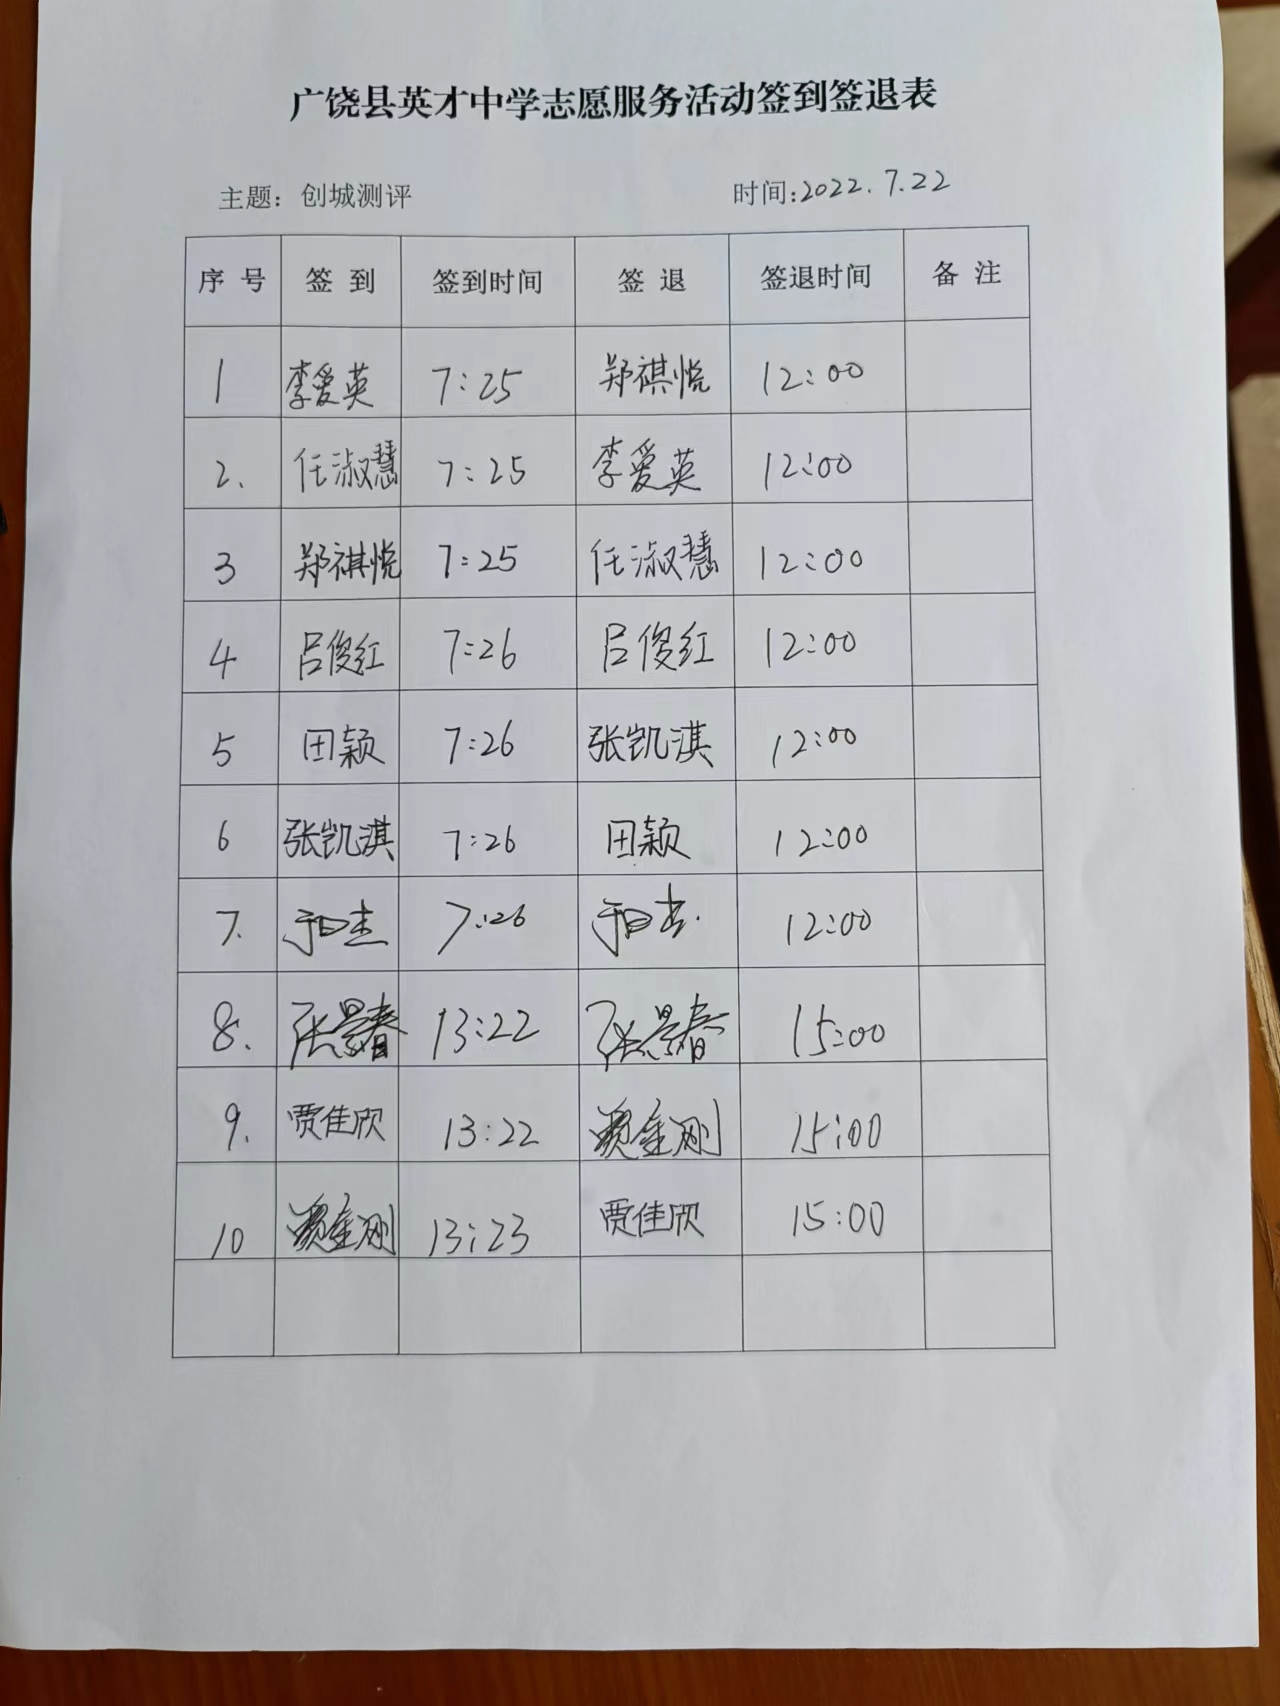 广饶县英才中学志愿服务活动签到签退表
主题：创城测评 时间:2022.7.22
序号 签到 签到时间 签退 签退时间 备注
1 李爱英 7:25 郑祺悦 12:00
2. 任淑慧 7:25 李爱英 12:00
3 郑祺悦 7:25 任淑慧 12:00
4 吕俊红 7:26 吕俊红 12:00
5 田颖 7:26 张凯淇 12:00
6 张凯淇 7:26 田颖 12:00
7. 7:26 12:00
8. 张景春 13:22 张景春 15:00
9. 贾佳欣 13:22 贾金刚 15:00
10 贾金刚 13:23 贾佳欣 15:00